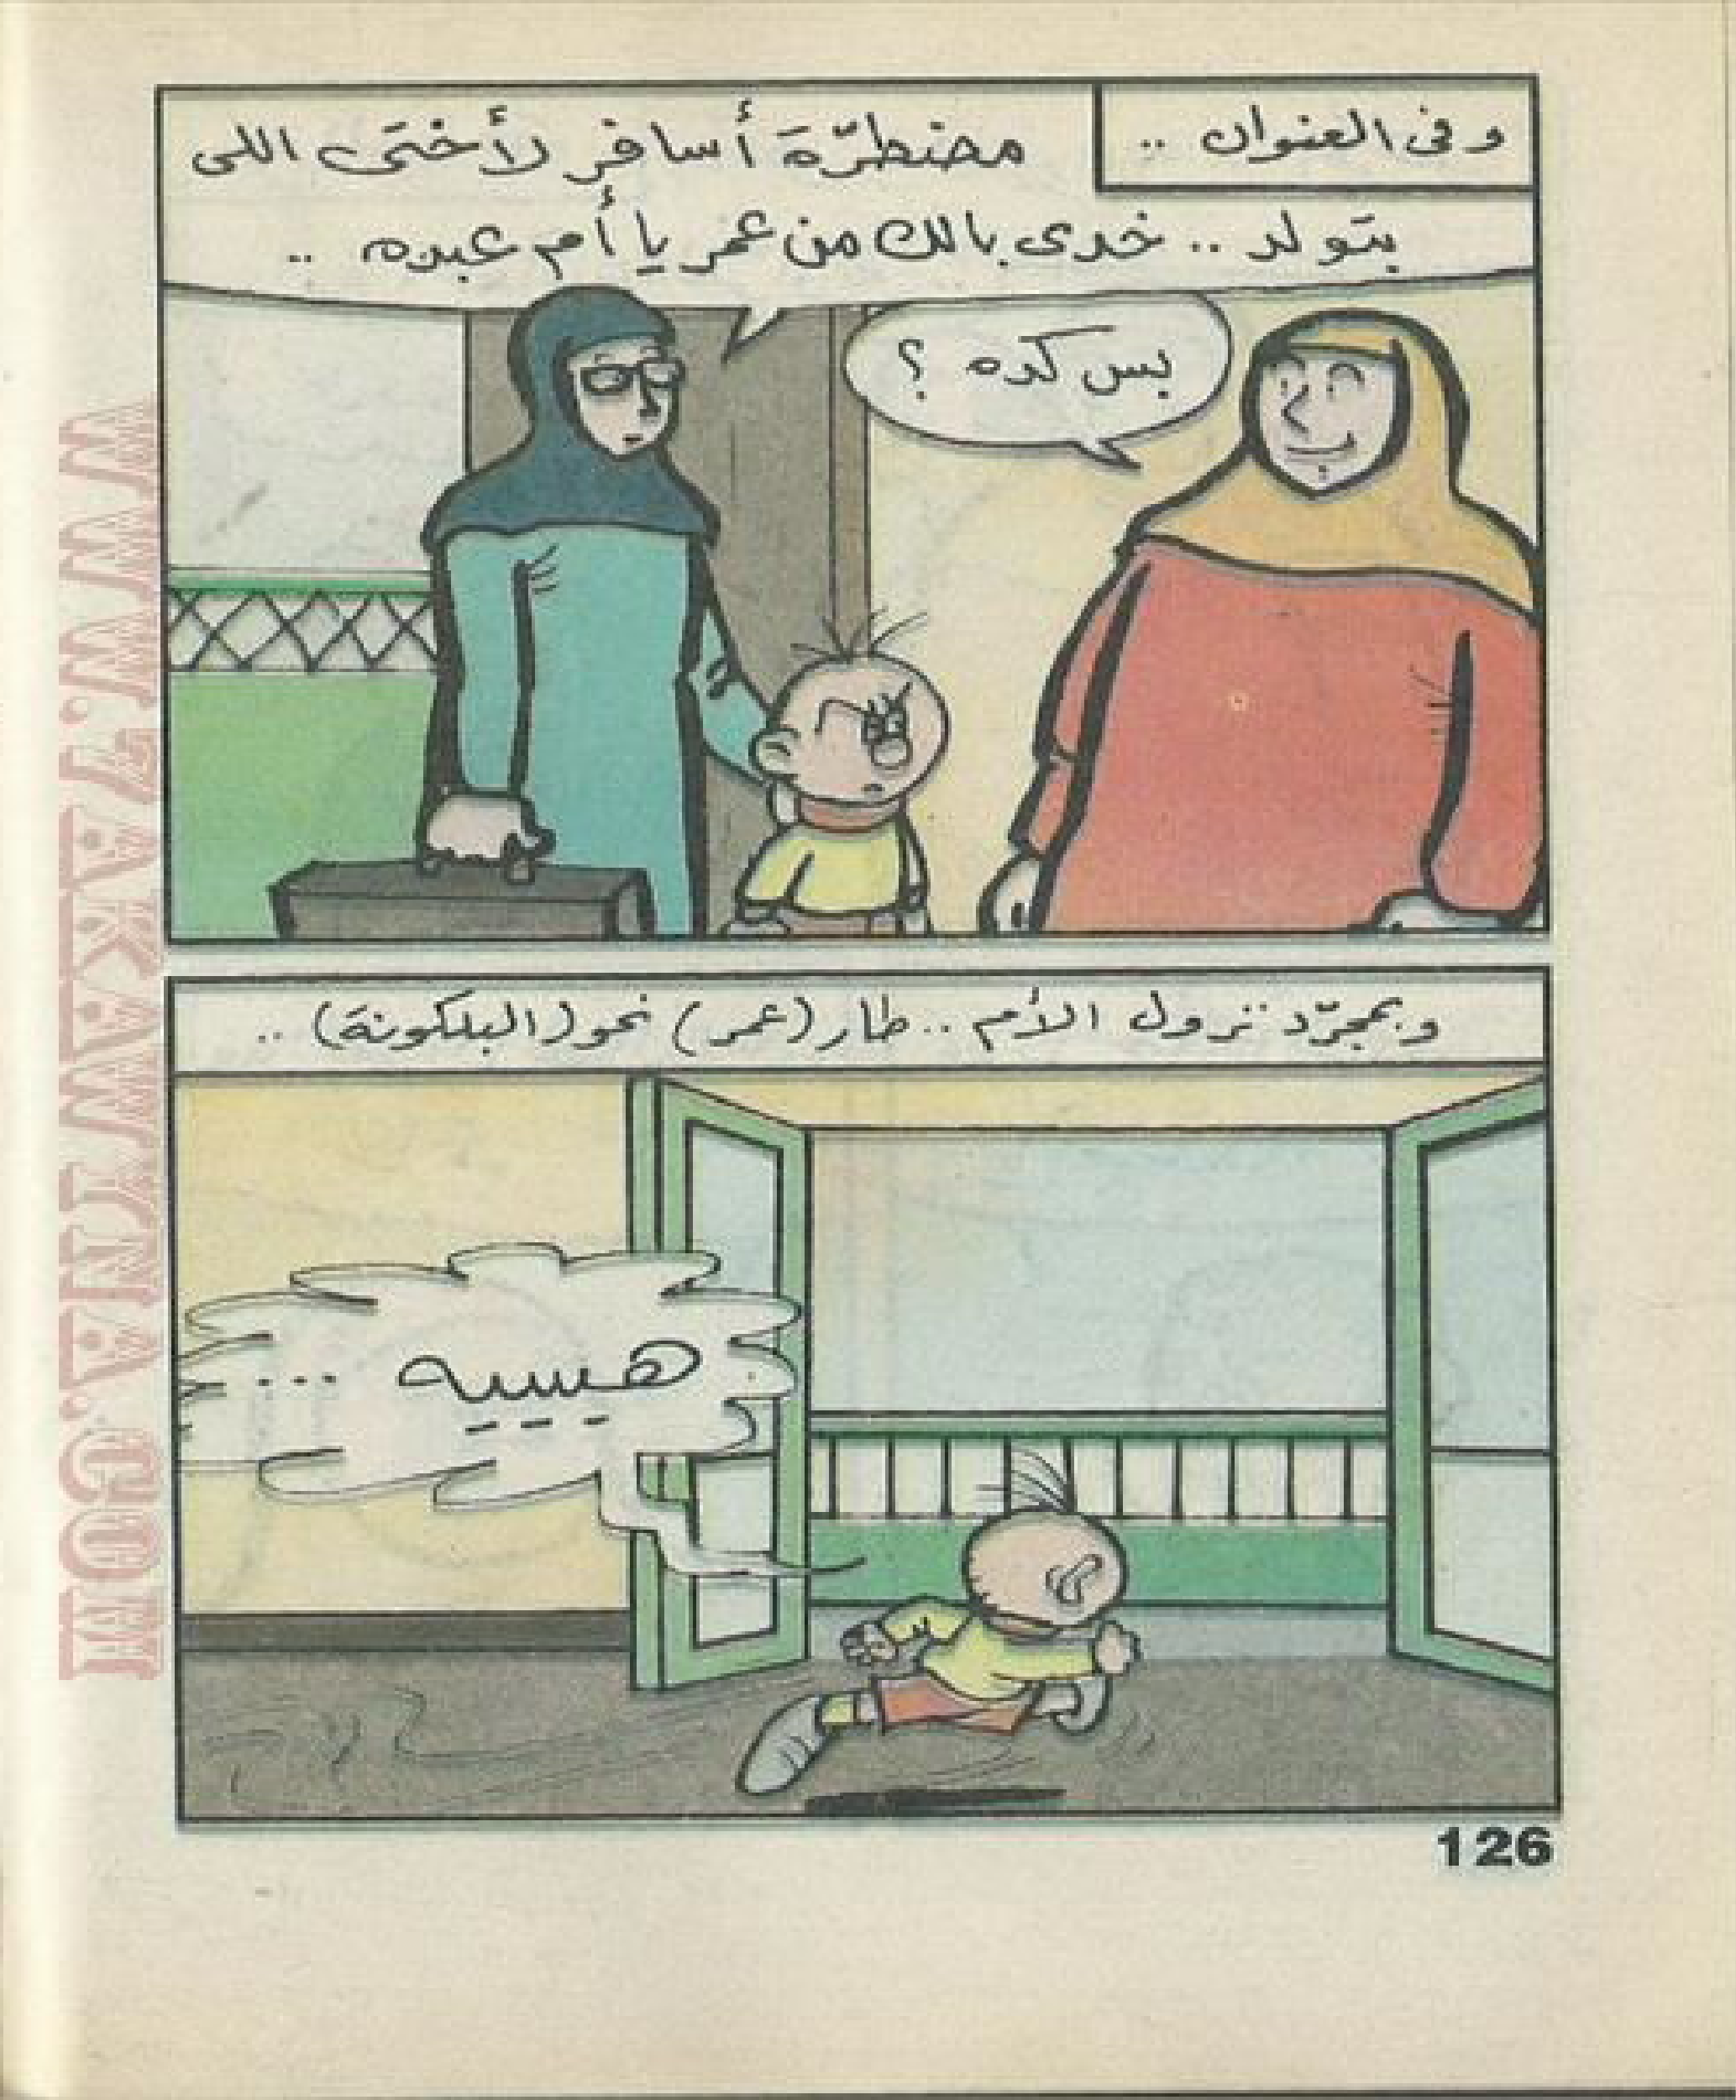 وفى العنوان ..
مضطرّة أسافر لأختى اللى
بتولد .. خدى بالك من عمر يا أم عبده ..
بس كده ؟
وبمجرّد نزول الأم .. طار (عمر) نحو (البلكونة) ..
هيييه ...
126
WWW.7AKAWITNA.COM